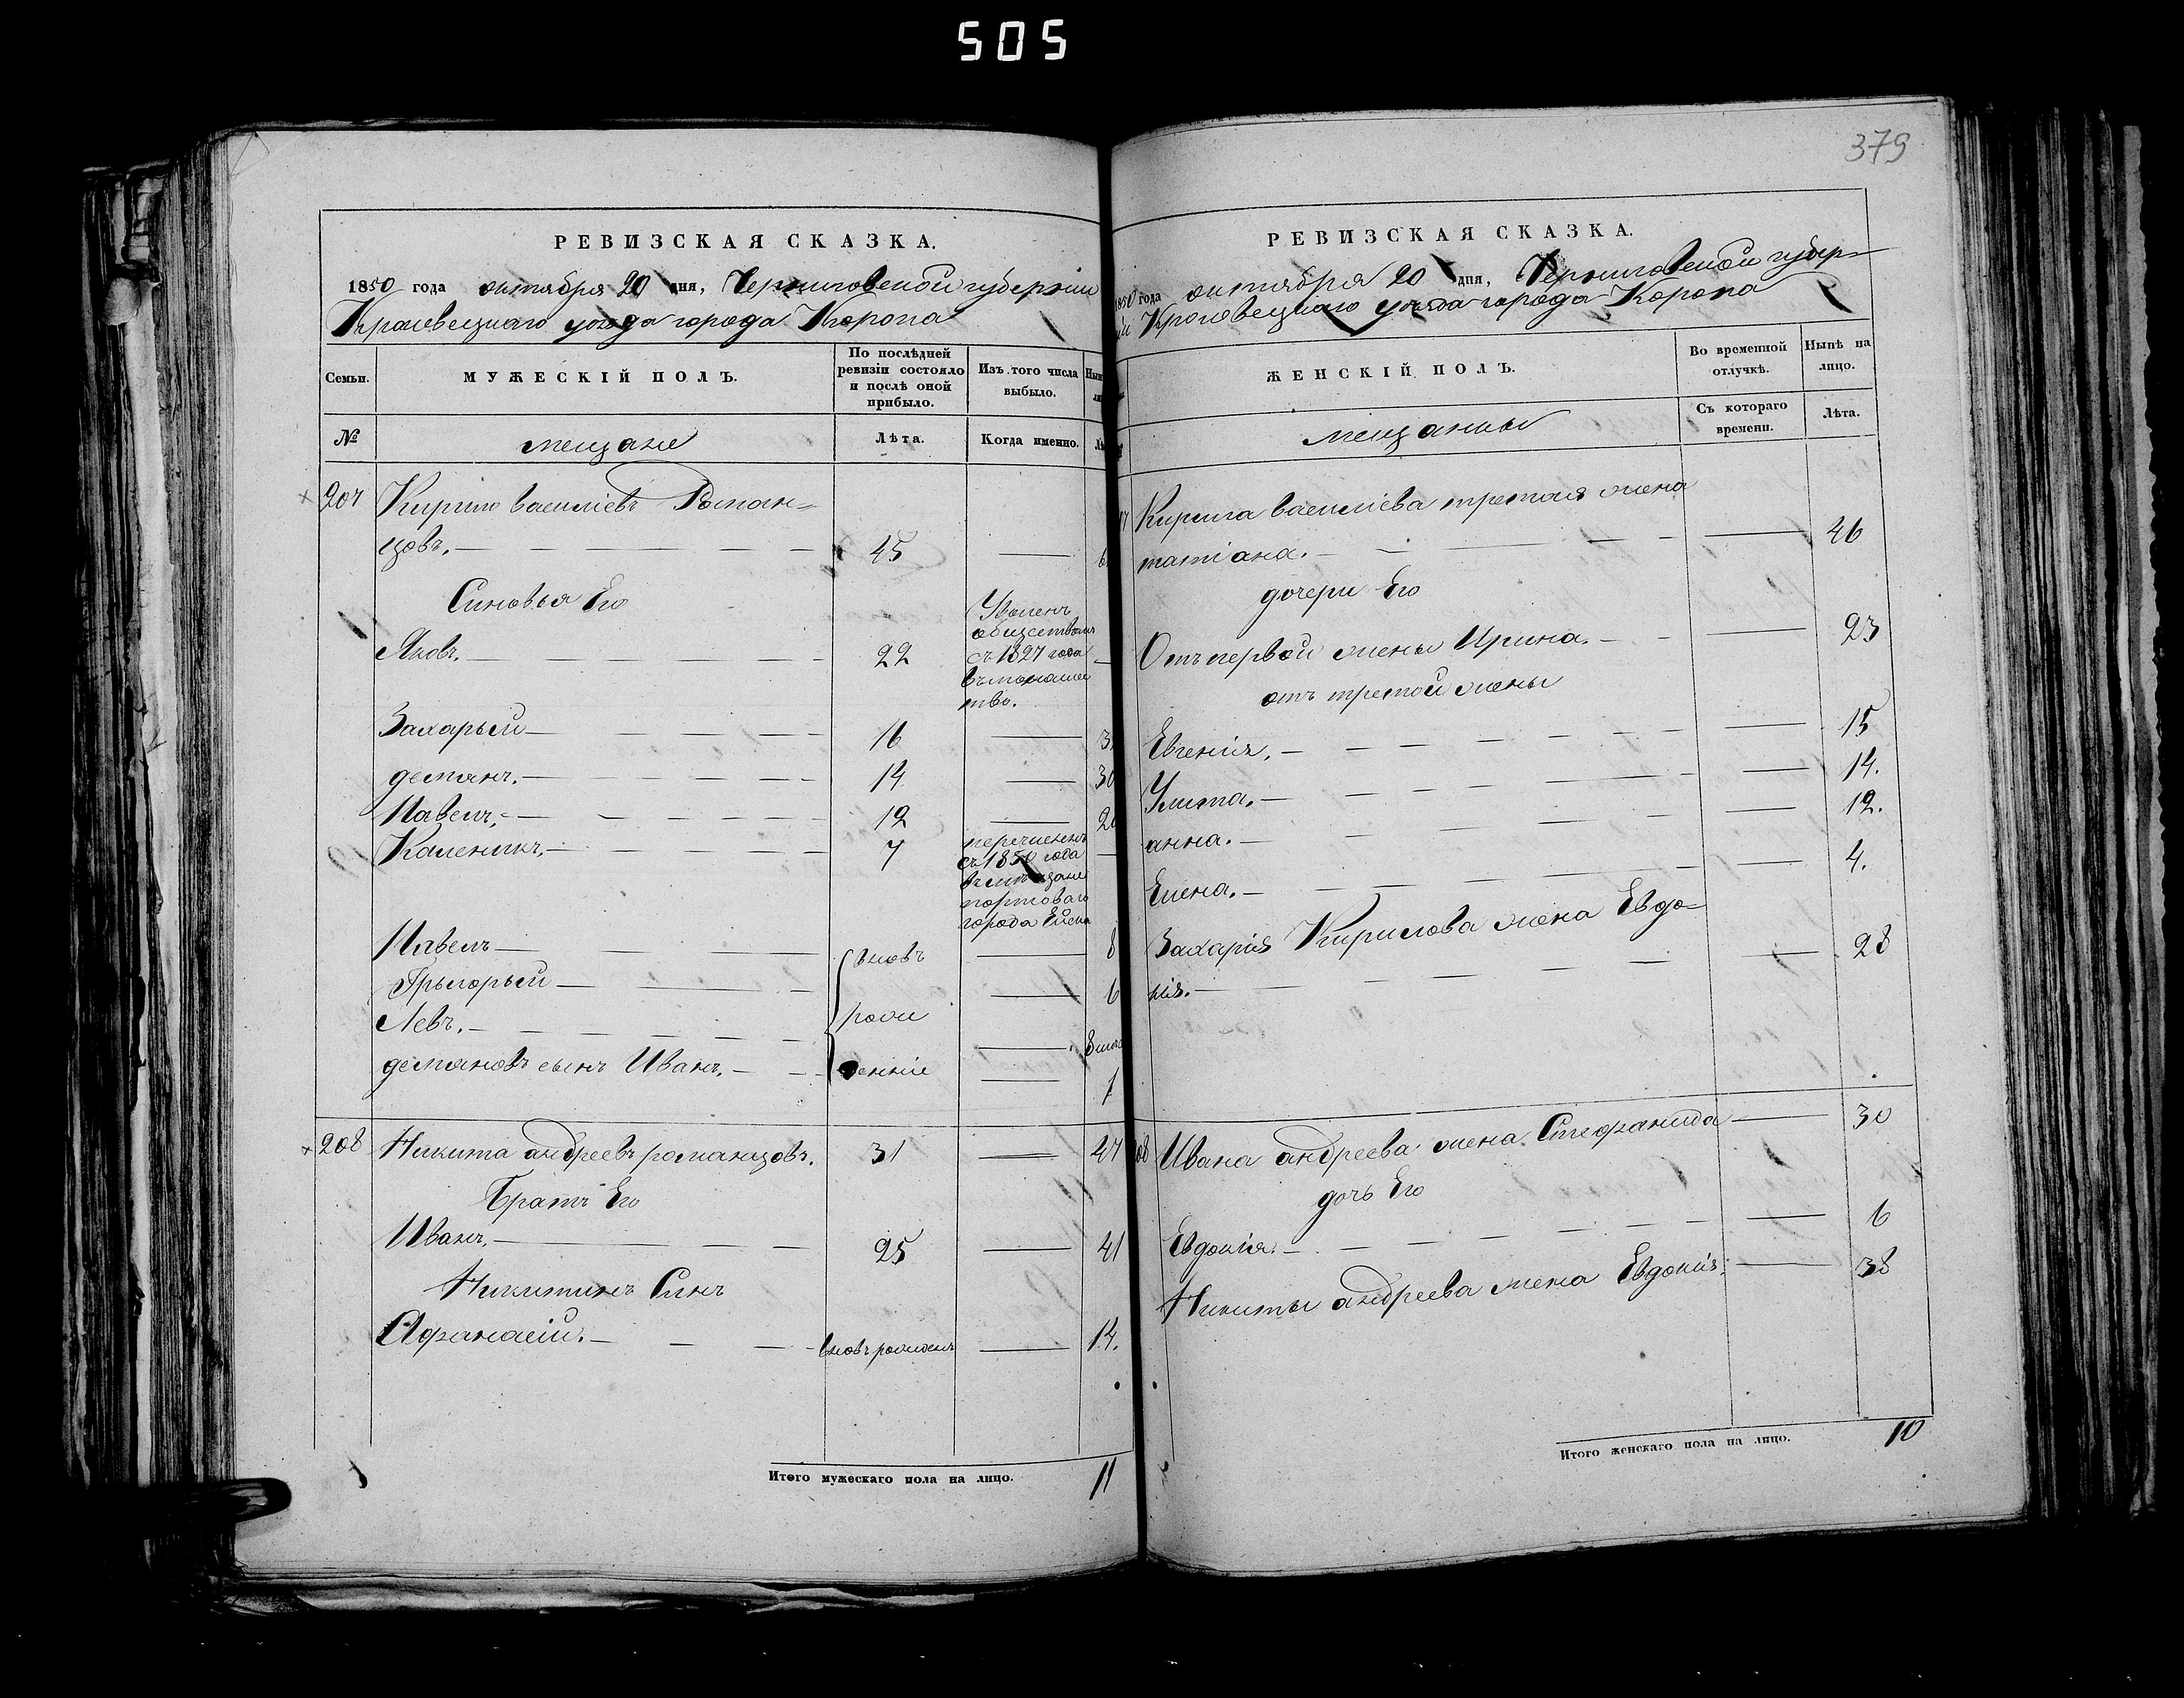 505
379
РЕВИЗСКАЯ СКАЗКА.
1850 года октября 20 дня, Черниговской губерніи
Кролевецкаго уезда города Коропа
Семьи.
МУЖЕСКІЙ ПОЛЪ.
По послѣдней ревизіи состояло и послѣ оной прибыло.
Изъ того числа выбыло.
№
мещане
Лѣта.
Когда именно.
207 Кирило василіевъ Роман=
цовъ. 45
Синовья Его
Яковъ. 22
Уволенъ
обществомъ
съ 1827 года
въ монашес
тво.
Захарьій 16
демянъ. 14 30
Павелъ. 12
Каленикъ. 7
перечисленъ
съ 1850 года
въ мещане
портоваго
города Ейска
Павелъ вновь 8
Грыгорьій 6
Левъ. рож
демяновъ сынъ Иванъ. денніе 1
208 Никита андреевъ романцовъ. 31 47
Братъ Его
Иванъ. 25 41
Никитинъ Синъ
Афанасій. вновь рожденъ 14.
Итого мужескаго пола на лицо. 11
РЕВИЗСКАЯ СКАЗКА.
1850 года октября 20 дня, Черниговской губер
ніи Кролевецкаго уезда города Коропа
ЖЕНСКІЙ ПОЛЪ.
Во временной отлучкѣ.
Нынѣ на лицо.
мещанки
Съ котораго времени.
Лѣта.
Кирила василіева третая жена
татіана. 46
дочери Его
Отъ первой жены Ирина. 23
отъ третой жены
Евгенія. 15
Улита. 14.
анна. 12.
Елена. 4.
Захарія Кирилова жена Евдо=
кія. 28
Ивана андреева жена Стефанида 30
дочь Его
Евдокія. 6
Никиты андреева жена Евдокія. 38
Итого женскаго пола на лицо. 10